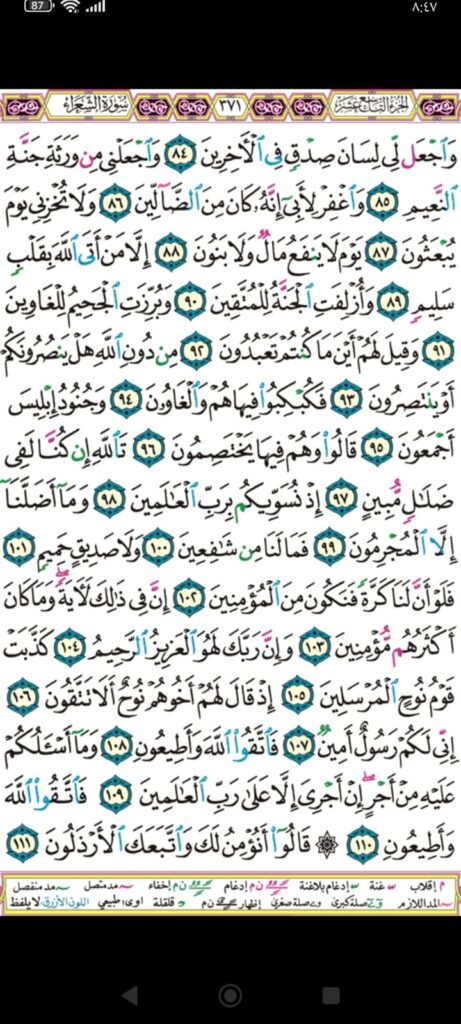 87 ٨:٤٧
الجزء التاسع عشر ٣٧١ سورة الشعراء
وَٱجۡعَل لِّي لِسَانَ صِدۡقٖ فِي ٱلۡأٓخِرِينَ ٨٤ وَٱجۡعَلۡنِي مِن وَرَثَةِ جَنَّةِ
ٱلنَّعِيمِ ٨٥ وَٱغۡفِرۡ لِأَبِيٓ إِنَّهُۥ كَانَ مِنَ ٱلضَّآلِّينَ ٨٦ وَلَا تُخۡزِنِي يَوۡمَ
يُبۡعَثُونَ ٨٧ يَوۡمَ لَا يَنفَعُ مَالٞ وَلَا بَنُونَ ٨٨ إِلَّا مَنۡ أَتَى ٱللَّهَ بِقَلۡبٖ
سَلِيمٖ ٨٩ وَأُزۡلِفَتِ ٱلۡجَنَّةُ لِلۡمُتَّقِينَ ٩٠ وَبُرِّزَتِ ٱلۡجَحِيمُ لِلۡغَاوِينَ
٩١ وَقِيلَ لَهُمۡ أَيۡنَ مَا كُنتُمۡ تَعۡبُدُونَ ٩٢ مِن دُونِ ٱللَّهِ هَلۡ يَنصُرُونَكُمۡ
أَوۡ يَنتَصِرُونَ ٩٣ فَكُبۡكِبُواْ فِيهَا هُمۡ وَٱلۡغَاوُۥنَ ٩٤ وَجُنُودُ إِبۡلِيسَ
أَجۡمَعُونَ ٩٥ قَالُواْ وَهُمۡ فِيهَا يَخۡتَصِمُونَ ٩٦ تَٱللَّهِ إِن كُنَّا لَفِي
ضَلَٰلٖ مُّبِينٍ ٩٧ إِذۡ نُسَوِّيكُم بِرَبِّ ٱلۡعَٰلَمِينَ ٩٨ وَمَآ أَضَلَّنَآ
إِلَّا ٱلۡمُجۡرِمُونَ ٩٩ فَمَا لَنَا مِن شَٰفِعِينَ ١٠٠ وَلَا صَدِيقٍ حَمِيمٖ ١٠١
فَلَوۡ أَنَّ لَنَا كَرَّةٗ فَنَكُونَ مِنَ ٱلۡمُؤۡمِنِينَ ١٠٢ إِنَّ فِي ذَٰلِكَ لَأٓيَةٗۖ وَمَا كَانَ
أَكۡثَرُهُم مُّؤۡمِنِينَ ١٠٣ وَإِنَّ رَبَّكَ لَهُوَ ٱلۡعَزِيزُ ٱلرَّحِيمُ ١٠٤ كَذَّبَتۡ
قَوۡمُ نُوحٍ ٱلۡمُرۡسَلِينَ ١٠٥ إِذۡ قَالَ لَهُمۡ أَخُوهُمۡ نُوحٌ أَلَا تَتَّقُونَ ١٠٦
إِنِّي لَكُمۡ رَسُولٌ أَمِينٞ ١٠٧ فَٱتَّقُواْ ٱللَّهَ وَأَطِيعُونِ ١٠٨ وَمَآ أَسۡـَٔلُكُمۡ
عَلَيۡهِ مِنۡ أَجۡرٍۖ إِنۡ أَجۡرِيَ إِلَّا عَلَىٰ رَبِّ ٱلۡعَٰلَمِينَ ١٠٩ فَٱتَّقُواْ ٱللَّهَ
وَأَطِيعُونِ ١١٠ ۞ قَالُوٓاْ أَنُؤۡمِنُ لَكَ وَٱتَّبَعَكَ ٱلۡأَرۡذَلُونَ ١١١
م إقلاب غنة إدغام بلاغنة ن م إدغام ن م إخفاء مد متصل مد منفصل
المد اللازم صلة كبرى صلة صغرى إظهار ن م قلقلة اوى؛ طبيعي اللون الأزرق؛ لا يلفظ